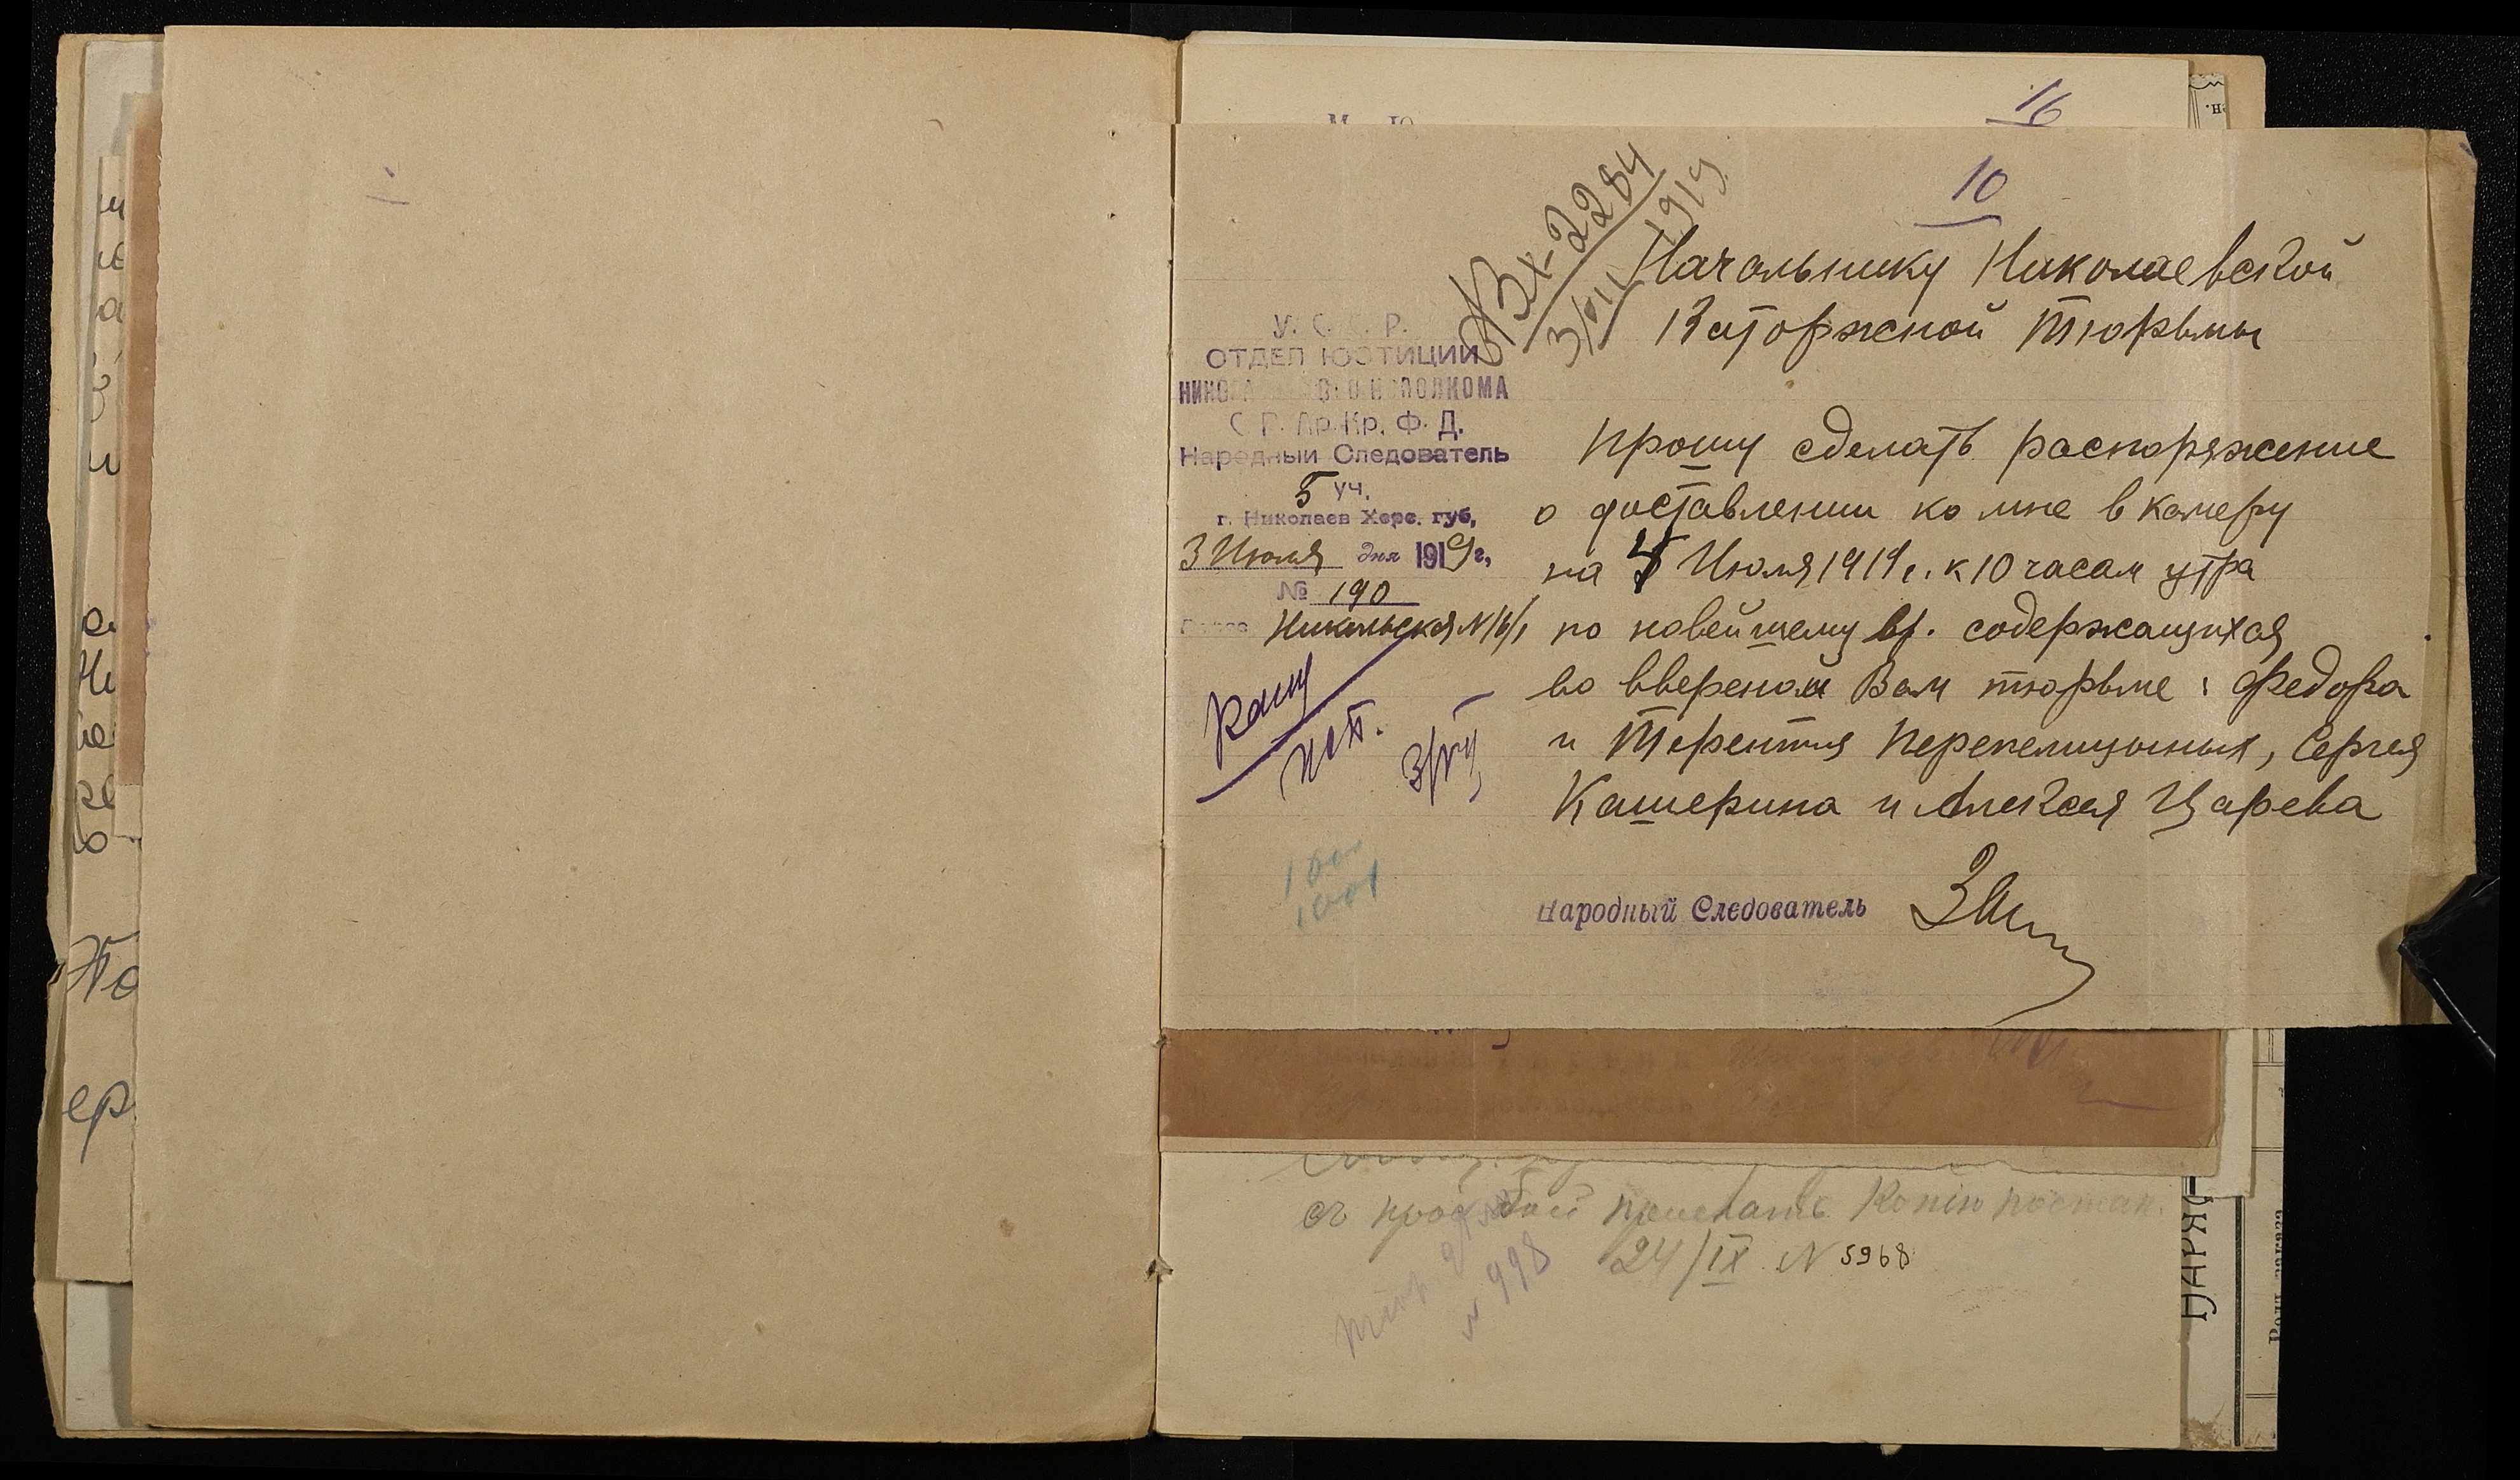 16
10
Вх-2284
3/VII 1919
Начальнику Николаевской
Каторжной Тюрьмы
У. С. С. Р.
ОТДЕЛ ЮСТИЦИИ
ИСПОЛКОМА
С. Р. Кр. Ф. Д.
Народный Следователь
5 уч.
г. Николаев Херс. губ,
3 Июля дня 1919 г,
№ 190
Никольская N
Прошу сделать распоряжение
о доставлении ко мне в камеру
на Июля 1919 г. к 10 часам утра
по новейшему вр. содержащихся
во ввереной Вам тюрьме: Федора
и Терентия Перепелицыных, Сергея
Кашерина и Алексея Царева
Народный Следователь
съ просьбой прислать копію постан.
24/IX N 5968
N 998
НАРЯД